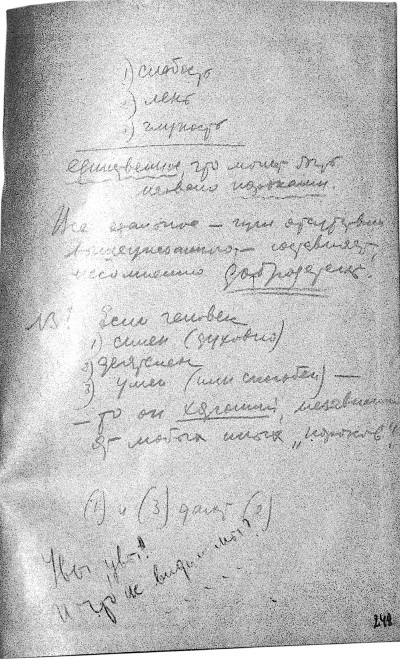 1) слабость
2) лень
3) глупость
единственное, что может быть
названо пороками.
Все остальное – при отсутствии
вышеуказанного – составляет,
несомненно добродетель.
NB! Если человек
1) силен (духовно)
2) деятелен
3) умен (или способен) —
— то он хороший, независимо
от любых иных „пороков“!
(1) и (3) дают (2)
Увы, увы!
И что ж видим мы?
. . . . .
248